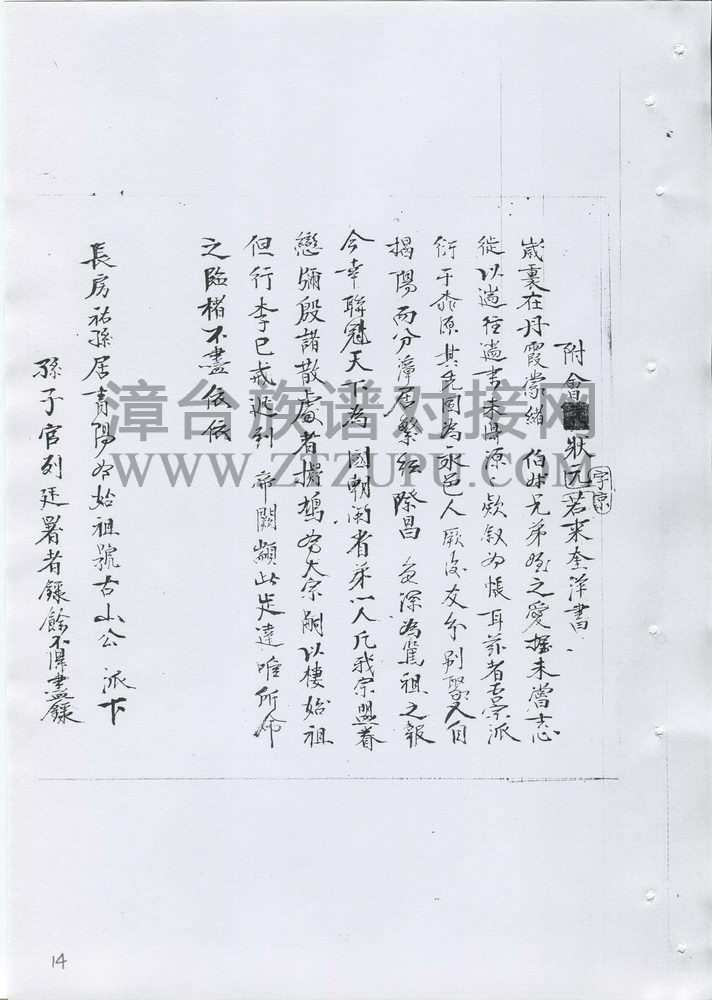 附會狀元若來奎洋書
字宗
歲裏在丹霞常緒伯叔兄弟姪之愛握未嘗忘
從以過往過書未得源源欵叙為悵耳茲者吾宗派
衍于泰源其先固為永邑人厥後支分別聚人自
揭陽而分漳居繁衍際昌益深為篤祖之報
今幸聯冠天下為國朝兩省第一人凡我宗盟眷
戀彌殷諸散處者搆鵠為大宗祠以棲始祖
但行李已戒迟到帝闕顓此走達唯所命
之臨楮不盡依依
長房祐孫居青陽為始祖號古山公派下
孫子官列廷署者錄餘不得盡錄
漳台族谱对接网
WWW.ZTZUPU.COM
14